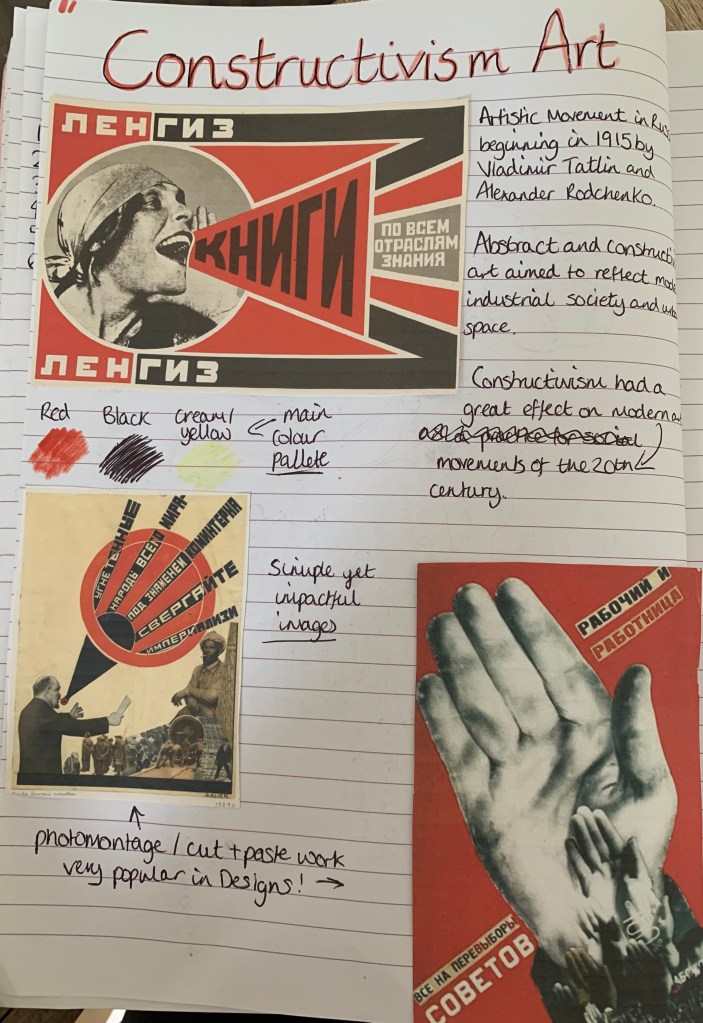 Constructivism Art
ЛЕНГИЗ
КНИГИ
ПО ВСЕМ
ОТРАСЛЯМ
ЗНАНИЯ
ЛЕНГИЗ
Artistic Movement in
beginning in 1915 by
Vladimir Tatlin and
Alexander Rodchenko.
Abstract and
art aimed to reflect
industrial society and
space.
Constructivism had a
great effect on modern
movements of the 20th
century.
Red
Black
Cream/
yellow
main
colour
pallete
УГНЕТЕННЫЕ
НАРОДЫ ВСЕГО МИРА
ПОД ЗНАМЕНЕМ КОМИНТЕРНА
СВЕРГАЙТЕ
ИМПЕРИАЛИЗМ
Simple yet
impactful
images
photomontage / cut + paste work
very popular in Designs! →
РАБОЧИЙ И
РАБОТНИЦА
ВСЕ НА ПЕРЕВЫБОРЫ
СОВЕТОВ